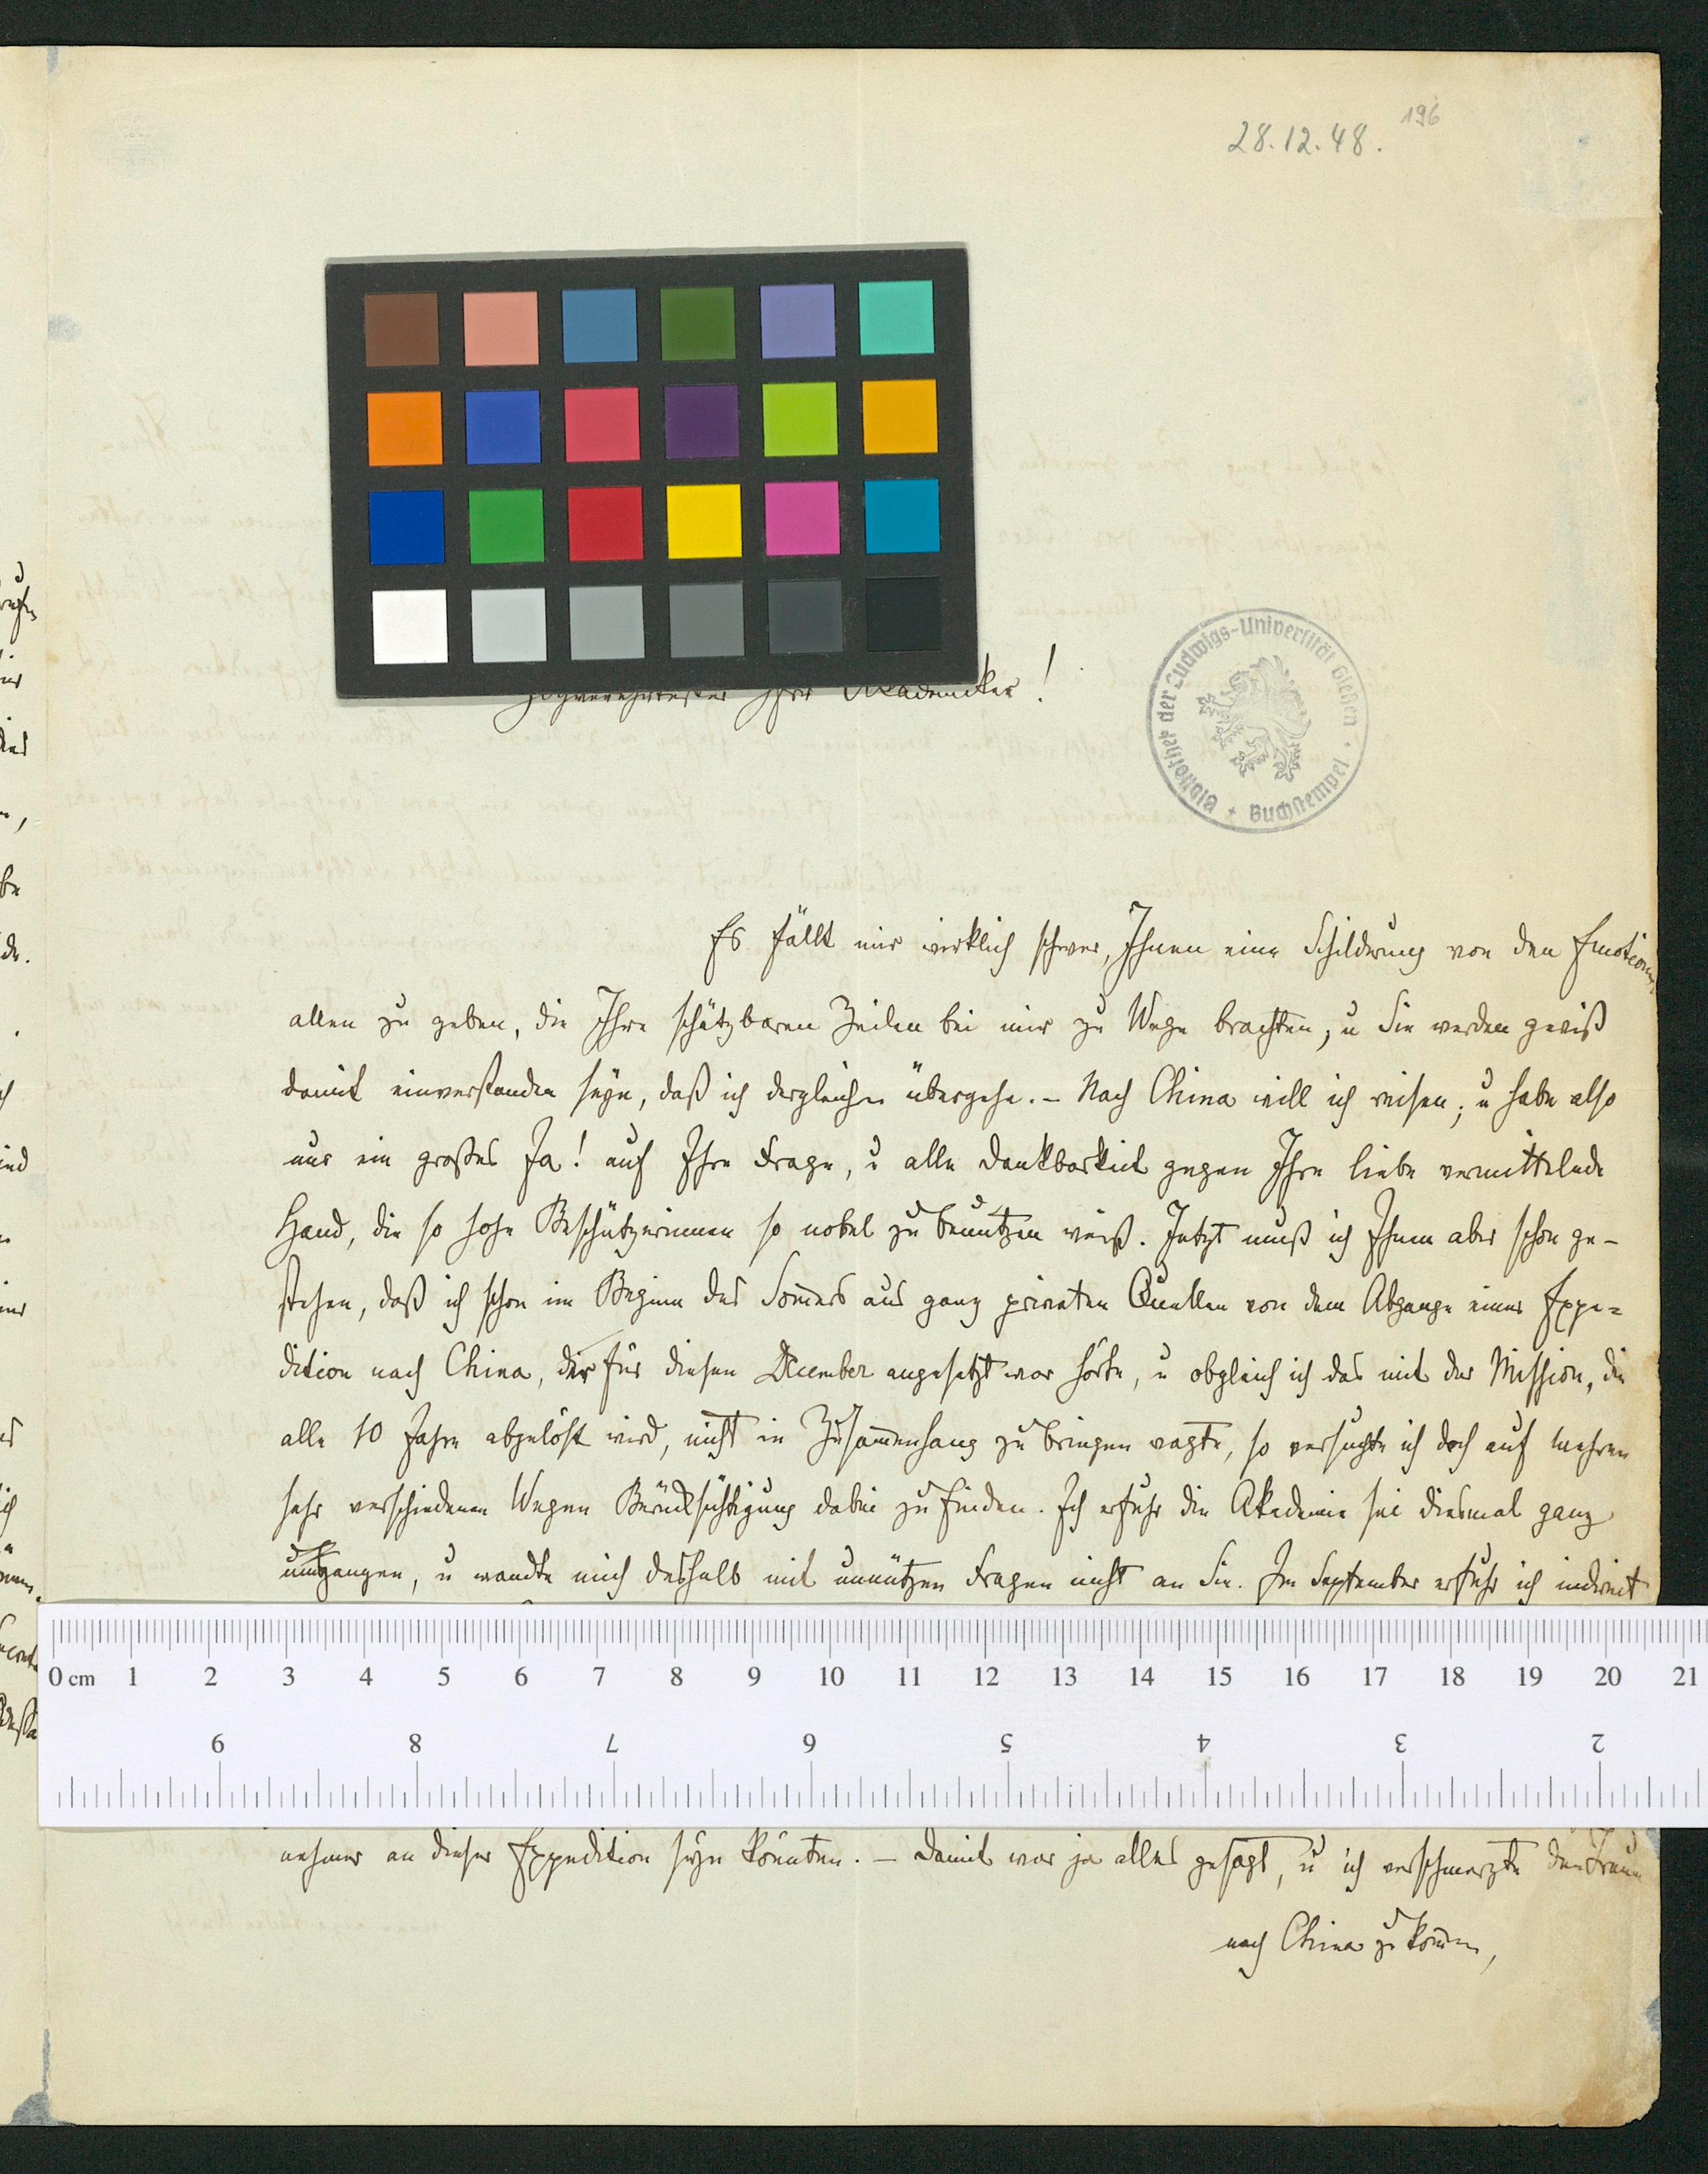 196
28.12.48.
Hochverehrtester Herr Akademiker!
Bibliothek der Ludwigs-Universität Gießen · Buchstempel
Es fällt mir wirklich schwer, Ihnen eine Schilderung von den Emotionen
allen zu geben, die Ihre schätzbaren Zeilen bei mir zu Wege brachten, u Sie werden gewiß
damit einverstanden seyn, daß ich dergleichen übergehe. – Nach China will ich reisen; u habe also
nur ein großes Ja! auf Ihre Frage, u alle Dankbarkeit gegen Ihre liebe vermittelnde
Hand, die so hohe Beschützerinnen so nobel zu benutzen weiß. Jetzt muß ich Ihnen aber schon ge-
stehen, daß ich schon im Beginn des Som̄ers aus ganz privaten Quellen von dem Abgange einer Expe=
dition nach China, die für diesen December angesetzt war hörte, u obgleich ich das mit der Mission, die
alle 10 Jahre abgelöst wird, nicht in Zusam̄enhang zu bringen wagte, so versuchte ich doch auf mehren
sehr verschiedenen Wegen Berücksichtigung dabei zu finden. Ich erfuhr die Akademie sei diesmal ganz
umgangen, u wandte mich deshalb mit unnützen Fragen nicht an Sie. Im September erfuhr ich indirect
0 cm 1 2 3 4 5 6 7 8 9 10 11 12 13 14 15 16 17 18 19 20 21
9 8 7 6 5 4 3 2
nehmer an dieser Expedition seyn könnten. – Damit war ja alles gesagt, u ich verschmerzte den Traum
nach China zu kom̄en,